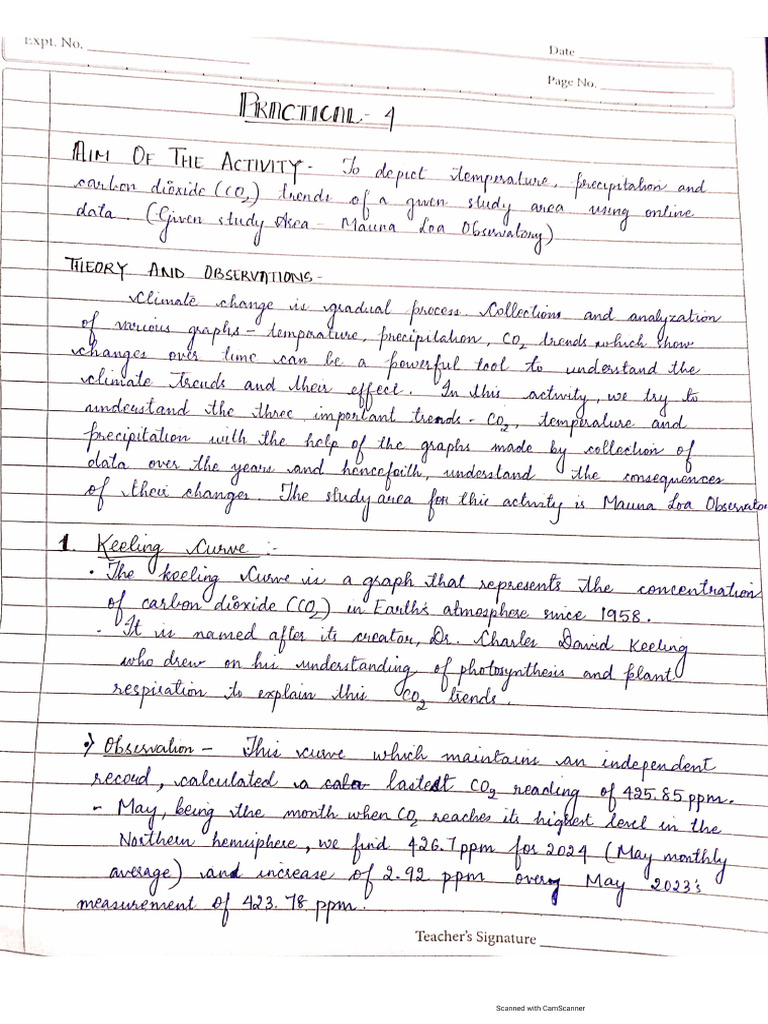 Expt. No.
Date
Page No.
PRACTICAL - 4
AIM OF THE ACTIVITY - To depict temperature, precipitation and
carbon dioxide (CO2) trends of a given study area using online
data. (Given study Area - Mauna Loa Observatory)
THEORY AND OBSERVATIONS -
Climate change is gradual process. Collections and analyzation
of various graphs - temperature, precipitation, CO2 trends which show
changes over time can be a powerful tool to understand the
climate trends and their effect. In this activity, we try to
understand the three important trends - CO2, temperature and
precipitation with the help of the graphs made by collection of
data over the years and henceforth, understand the consequences
of their changes. The study area for this activity is Mauna Loa Observato
1. Keeling Curve :-
• The keeling Curve is a graph that represents the concentration
of carbon dioxide (CO2) in Earth's atmosphere since 1958.
- It is named after its creator, Dr. Charles David Keeling
who drew on his understanding of photosynthesis and plant
respiration to explain this CO2 trends.
•) Observation - This curve which maintains an independent
record, calculated a lastest CO2 reading of 425.85 ppm.
- May, being the month when CO2 reaches its highest level in the
Northern hemisphere, we find 426.7 ppm for 2024 (May monthly
average) and increase of 2.92 ppm over May 2023's
measurement of 423.78 ppm.
Teacher's Signature
Scanned with CamScanner